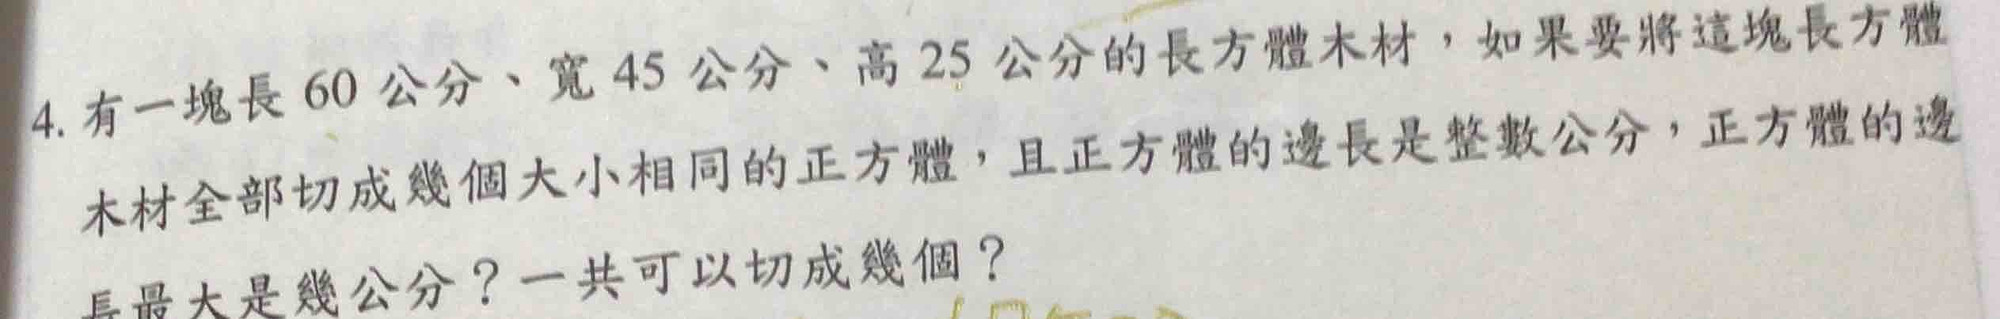 4. 有一塊長 60 公分、寬 45 公分、高 25 公分的長方體木材，如果要將這塊長方體
木材全部切成幾個大小相同的正方體，且正方體的邊長是整數公分，正方體的邊
長最大是幾公分？一共可以切成幾個？